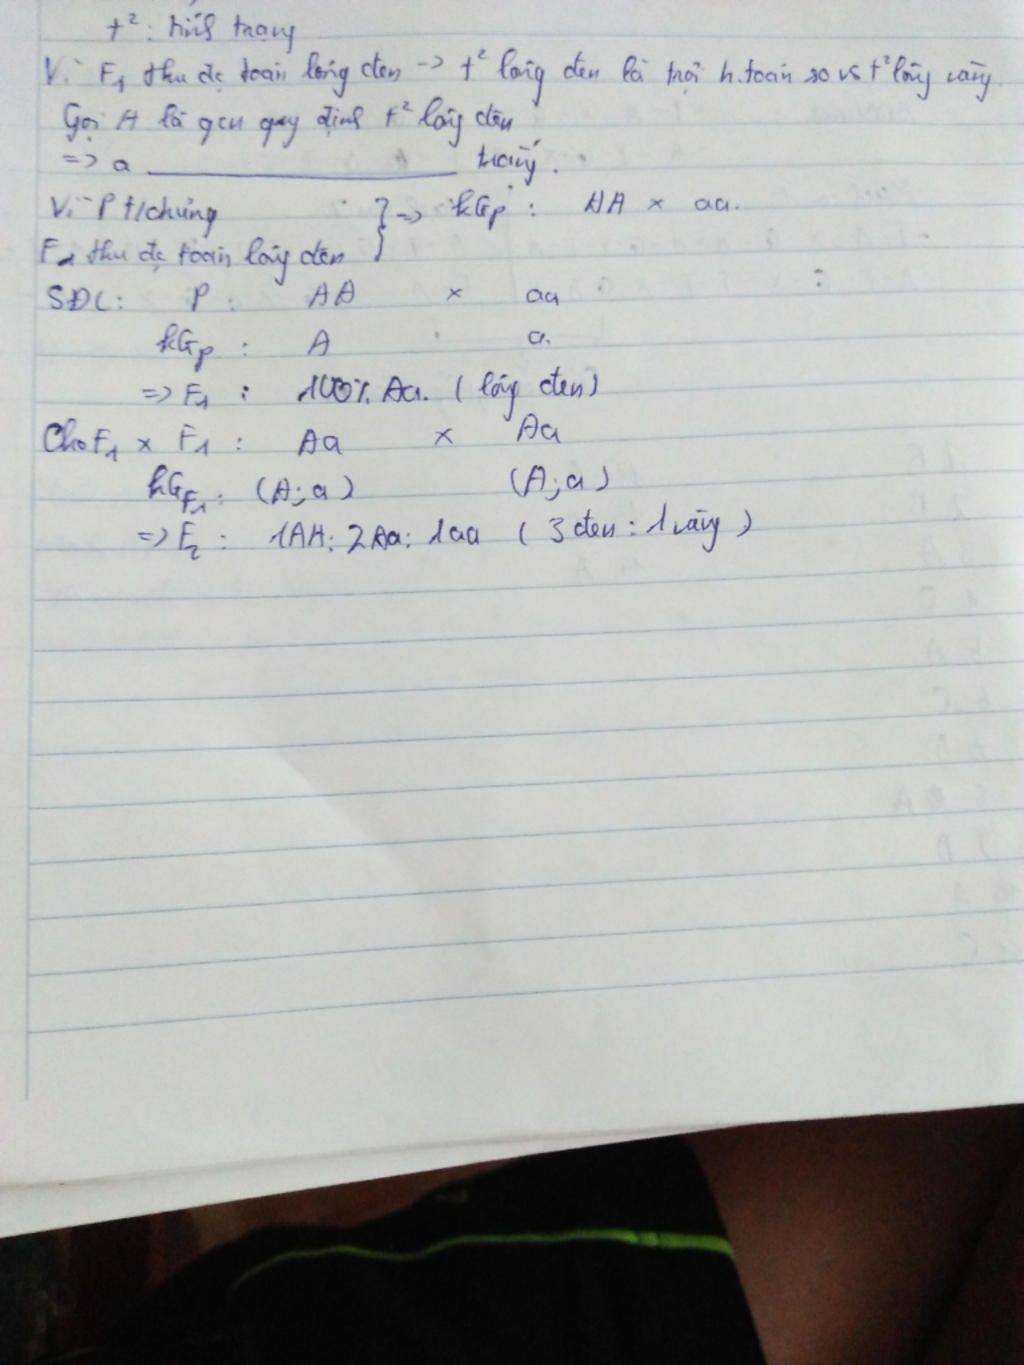 t²: tính trạng
Vì F1 thu đc toàn lông đen -> t² lông đen là trội h.toàn so vs t² lông vàng
Gọi A là gen quy định t² lông đen
=> a ____________ trắng.
Vì P t/chủng } => kGp : AA × aa.
F1 thu đc toàn lông đen
SĐL: P : AA × aa
kGp : A a.
=> F1 : 100% Aa. ( lông đen)
Cho F1 × F1 : Aa × Aa
kGF1 : (A; a) (A; a)
=> F2 : 1AA: 2Aa: 1aa ( 3 đen : 1 vàng )